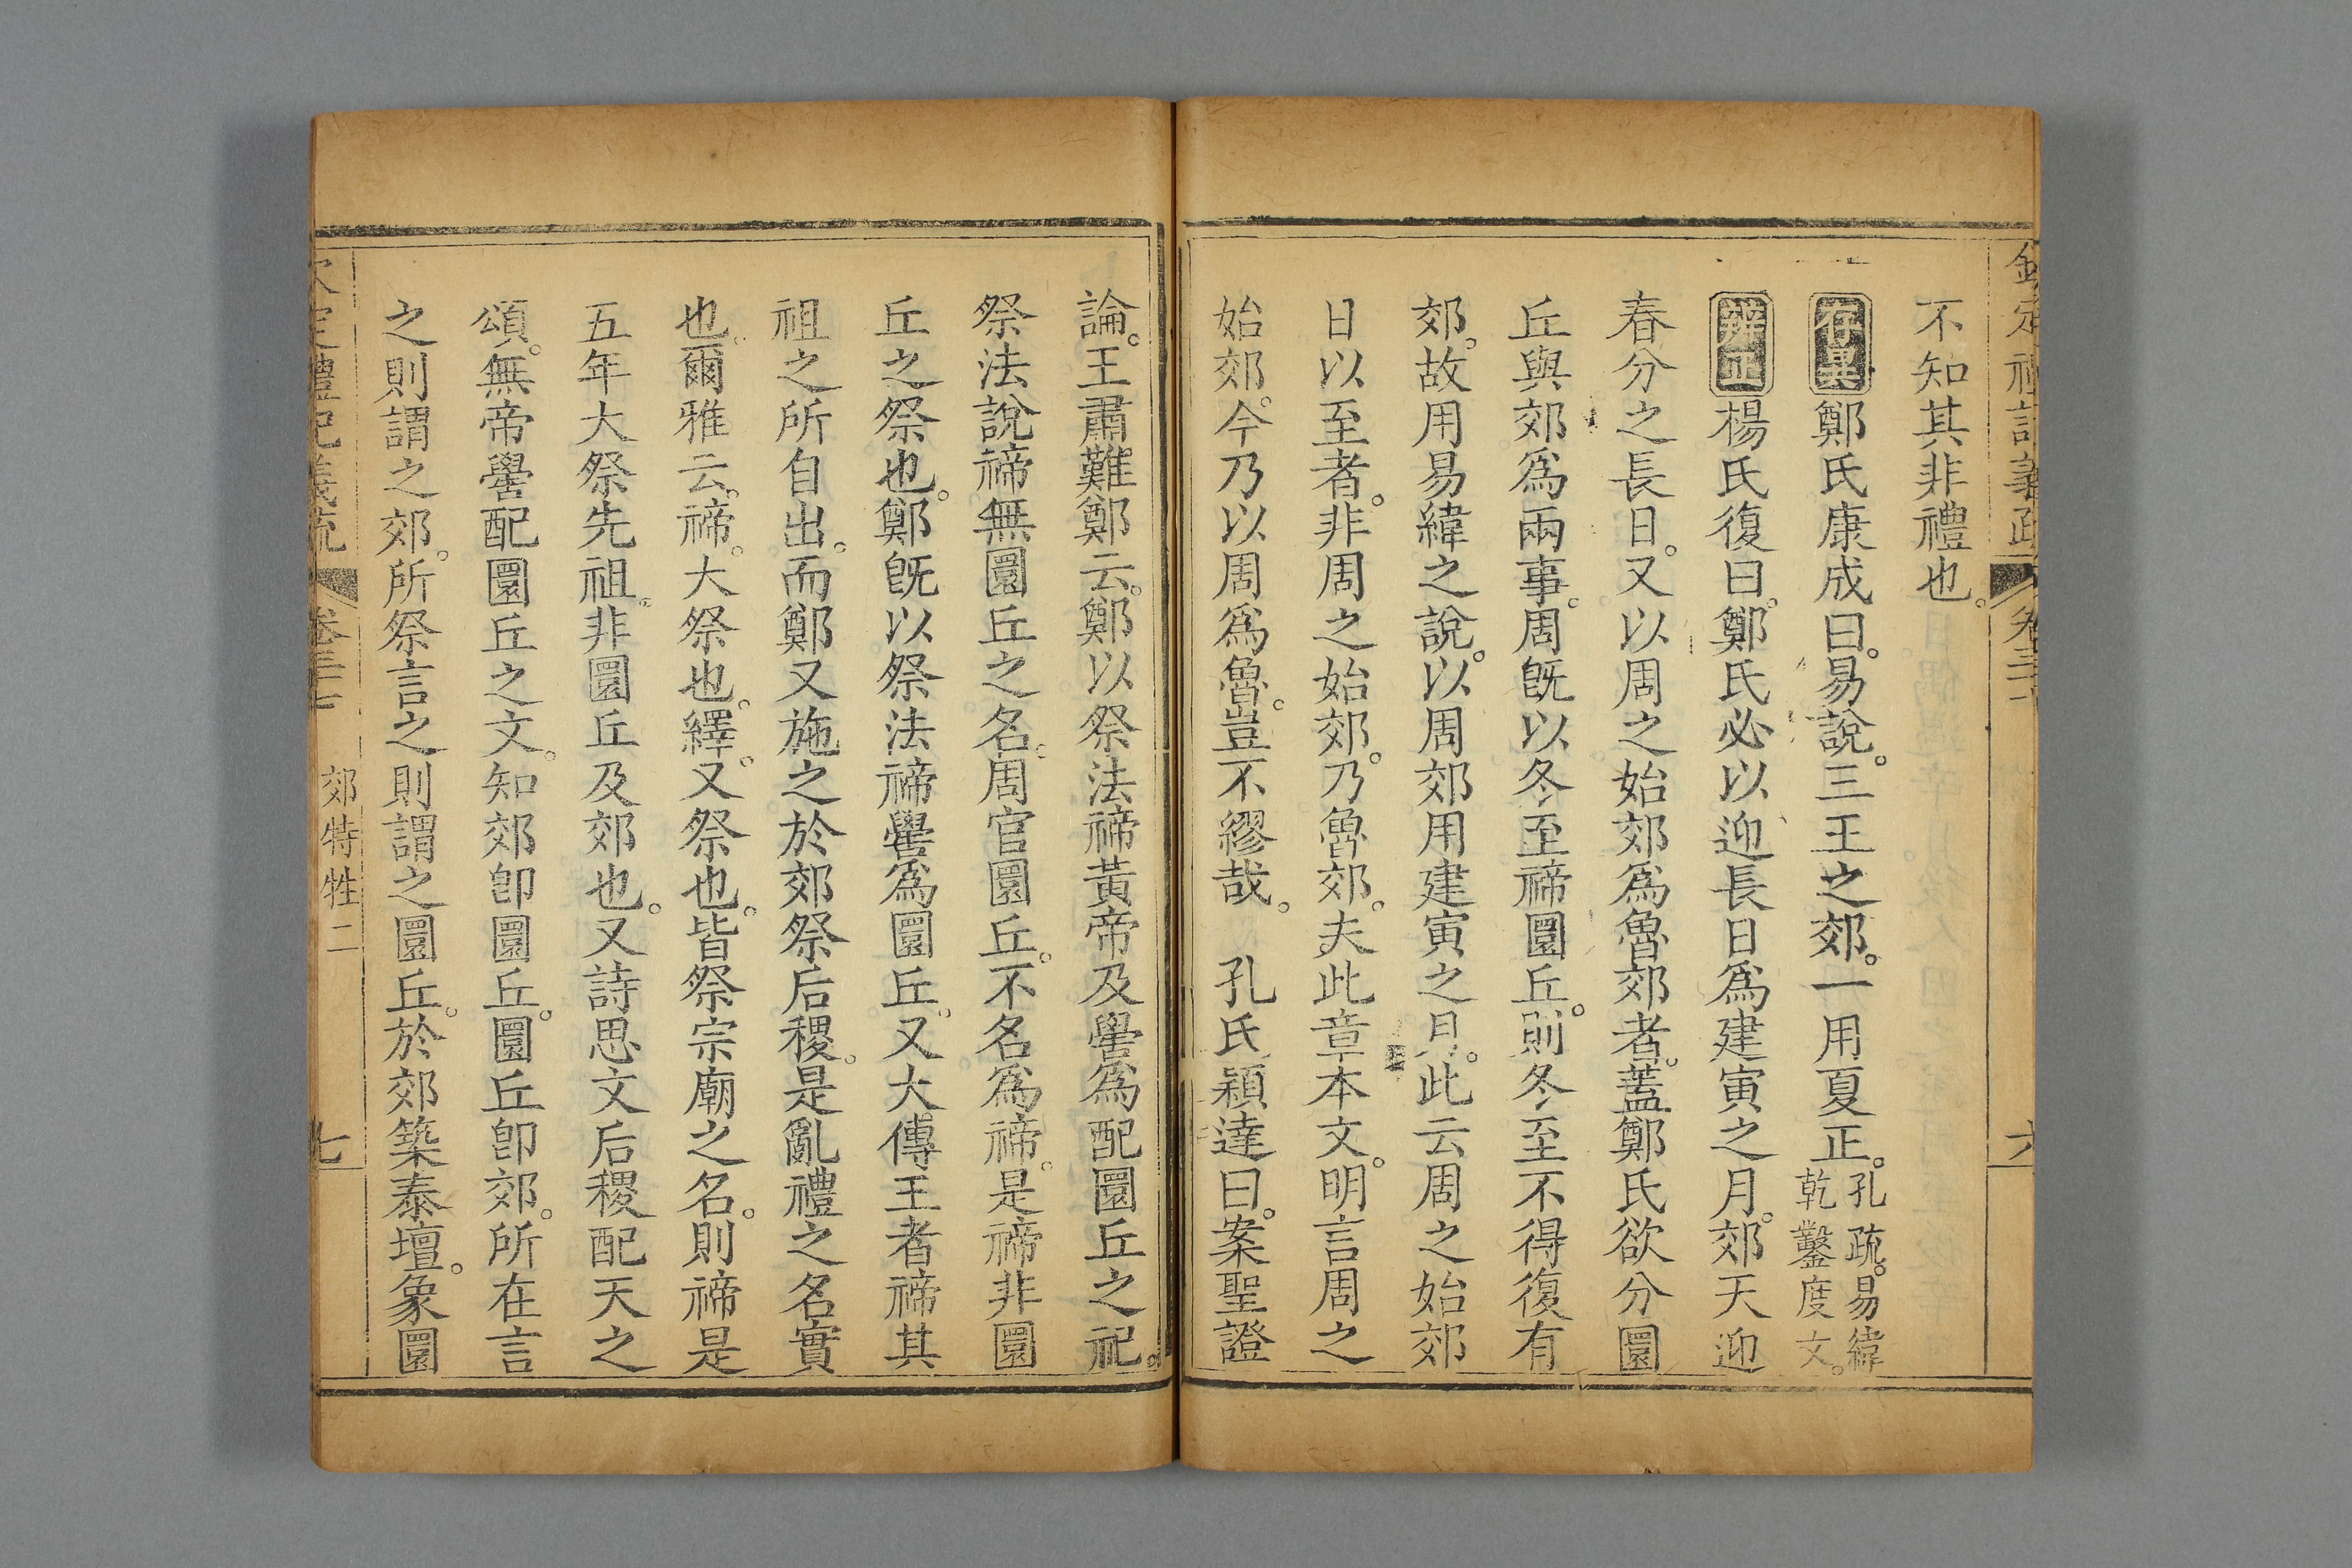 欽定禮記義疏 卷三十 六
不知其非禮也。
存異鄭氏康成曰。易說。三王之郊。一用夏正。孔疏。易緯乾鑿度文。
辨正楊氏復曰。鄭氏必以迎長日爲建寅之月。郊天迎
春分之長日。又以周之始郊爲魯郊者。蓋鄭氏欲分圜
丘與郊爲兩事。周旣以冬至禘圜丘。則冬至不得復有
郊。故用易緯之說。以周郊用建寅之月。此云周之始郊
日以至者。非周之始郊。乃魯郊。夫此章本文。明言周之
始郊。今乃以周爲魯。豈不繆哉。 孔氏穎達曰。案聖證
論。王肅難鄭云。鄭以祭法禘黃帝及嚳爲配圜丘之祀。
祭法說禘無圜丘之名。周官圜丘。不名爲禘。是禘非圜
丘之祭也。鄭旣以祭法禘嚳爲圜丘。又大傳王者禘其
祖之所自出。而鄭又施之於郊祭后稷。是亂禮之名實
也。爾雅云。禘。大祭也。繹。又祭也。皆祭宗廟之名。則禘是
五年大祭先祖。非圜丘及郊也。又詩思文后稷配天之
頌。無帝嚳配圜丘之文。知郊卽圜丘。圜丘卽郊。所在言
之則謂之郊。所祭言之則謂之圜丘。於郊築泰壇。象圜
欽定禮記義疏 卷三十七 郊特牲二 七